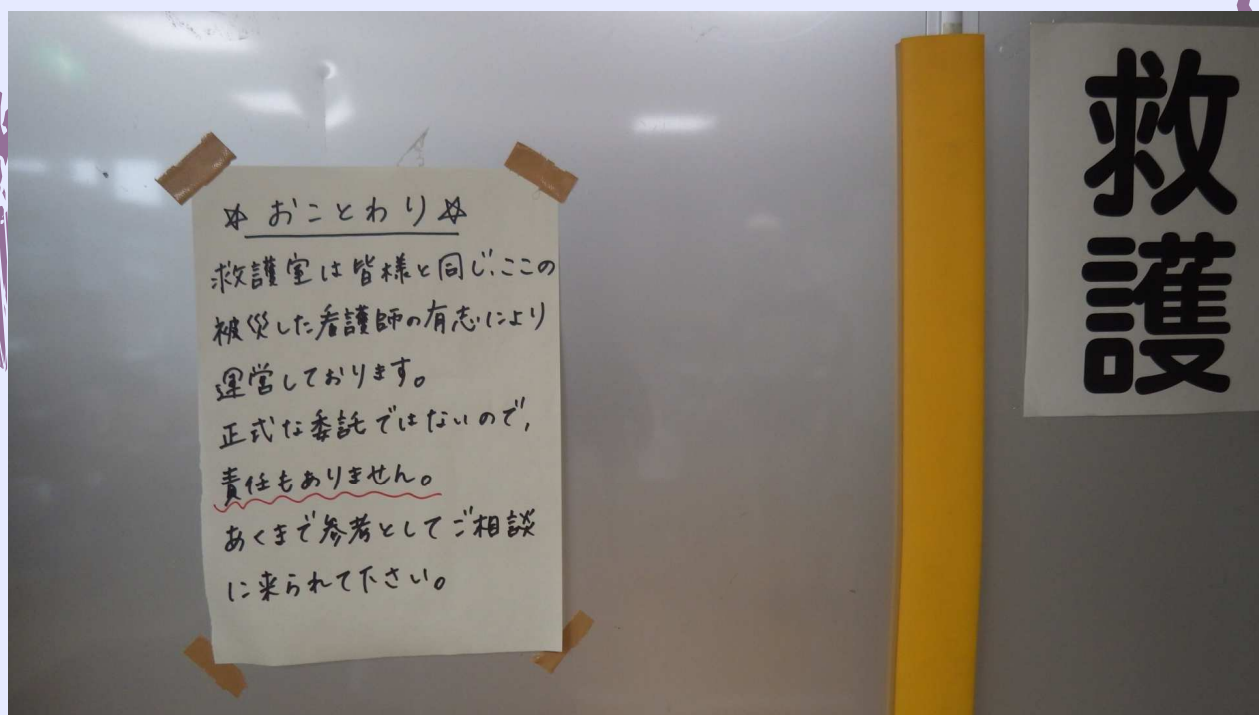 ☆ おことわり ☆
救護室は皆様と同じ、ここの
被災した看護師の有志により
運営しております。
正式な委託ではないので、
責任もありません。
あくまで参考としてご相談
に来られて下さい。
救護